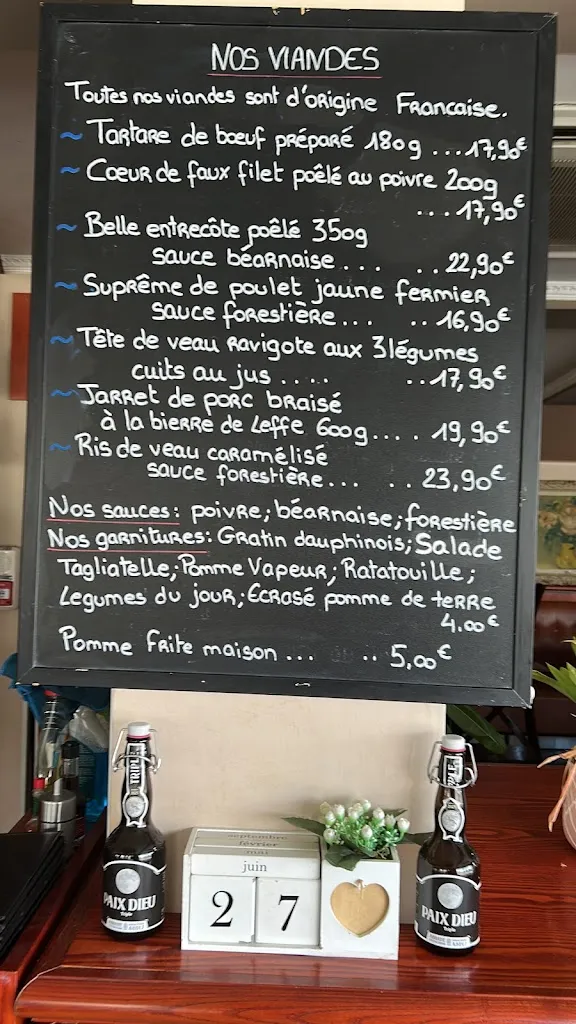 NOS VIANDES
Toutes nos viandes sont d'origine Francaise.
~ Tartare de bœuf préparé 180g ...17,90€
~ Coeur de faux filet poêlé au poivre 200g
...17,90€
~ Belle entrecôte poêlé 350g
sauce béarnaise... ..22,90€
~ Suprême de poulet jaune fermier
sauce forestière... ..16,90€
~ Tête de veau ravigote aux 3 légumes
cuits au jus..... ..17,90€
~ Jarret de porc braisé
à la bierre de Leffe 600g.... 19,90€
~ Ris de veau caramélisé
sauce forestière... ..23,90€
Nos sauces: poivre; béarnaise; forestière
Nos garnitures: Gratin dauphinois; Salade
Tagliatelle; Pomme Vapeur; Ratatouille;
Legumes du jour; Ecrasé pomme de terre
4.00€
Pomme frite maison... ..5,00€
TRIPLE
PAIX DIEU
Triple
septembre
février
mai
juin
27
TRIPLE
PAIX DIEU
Triple